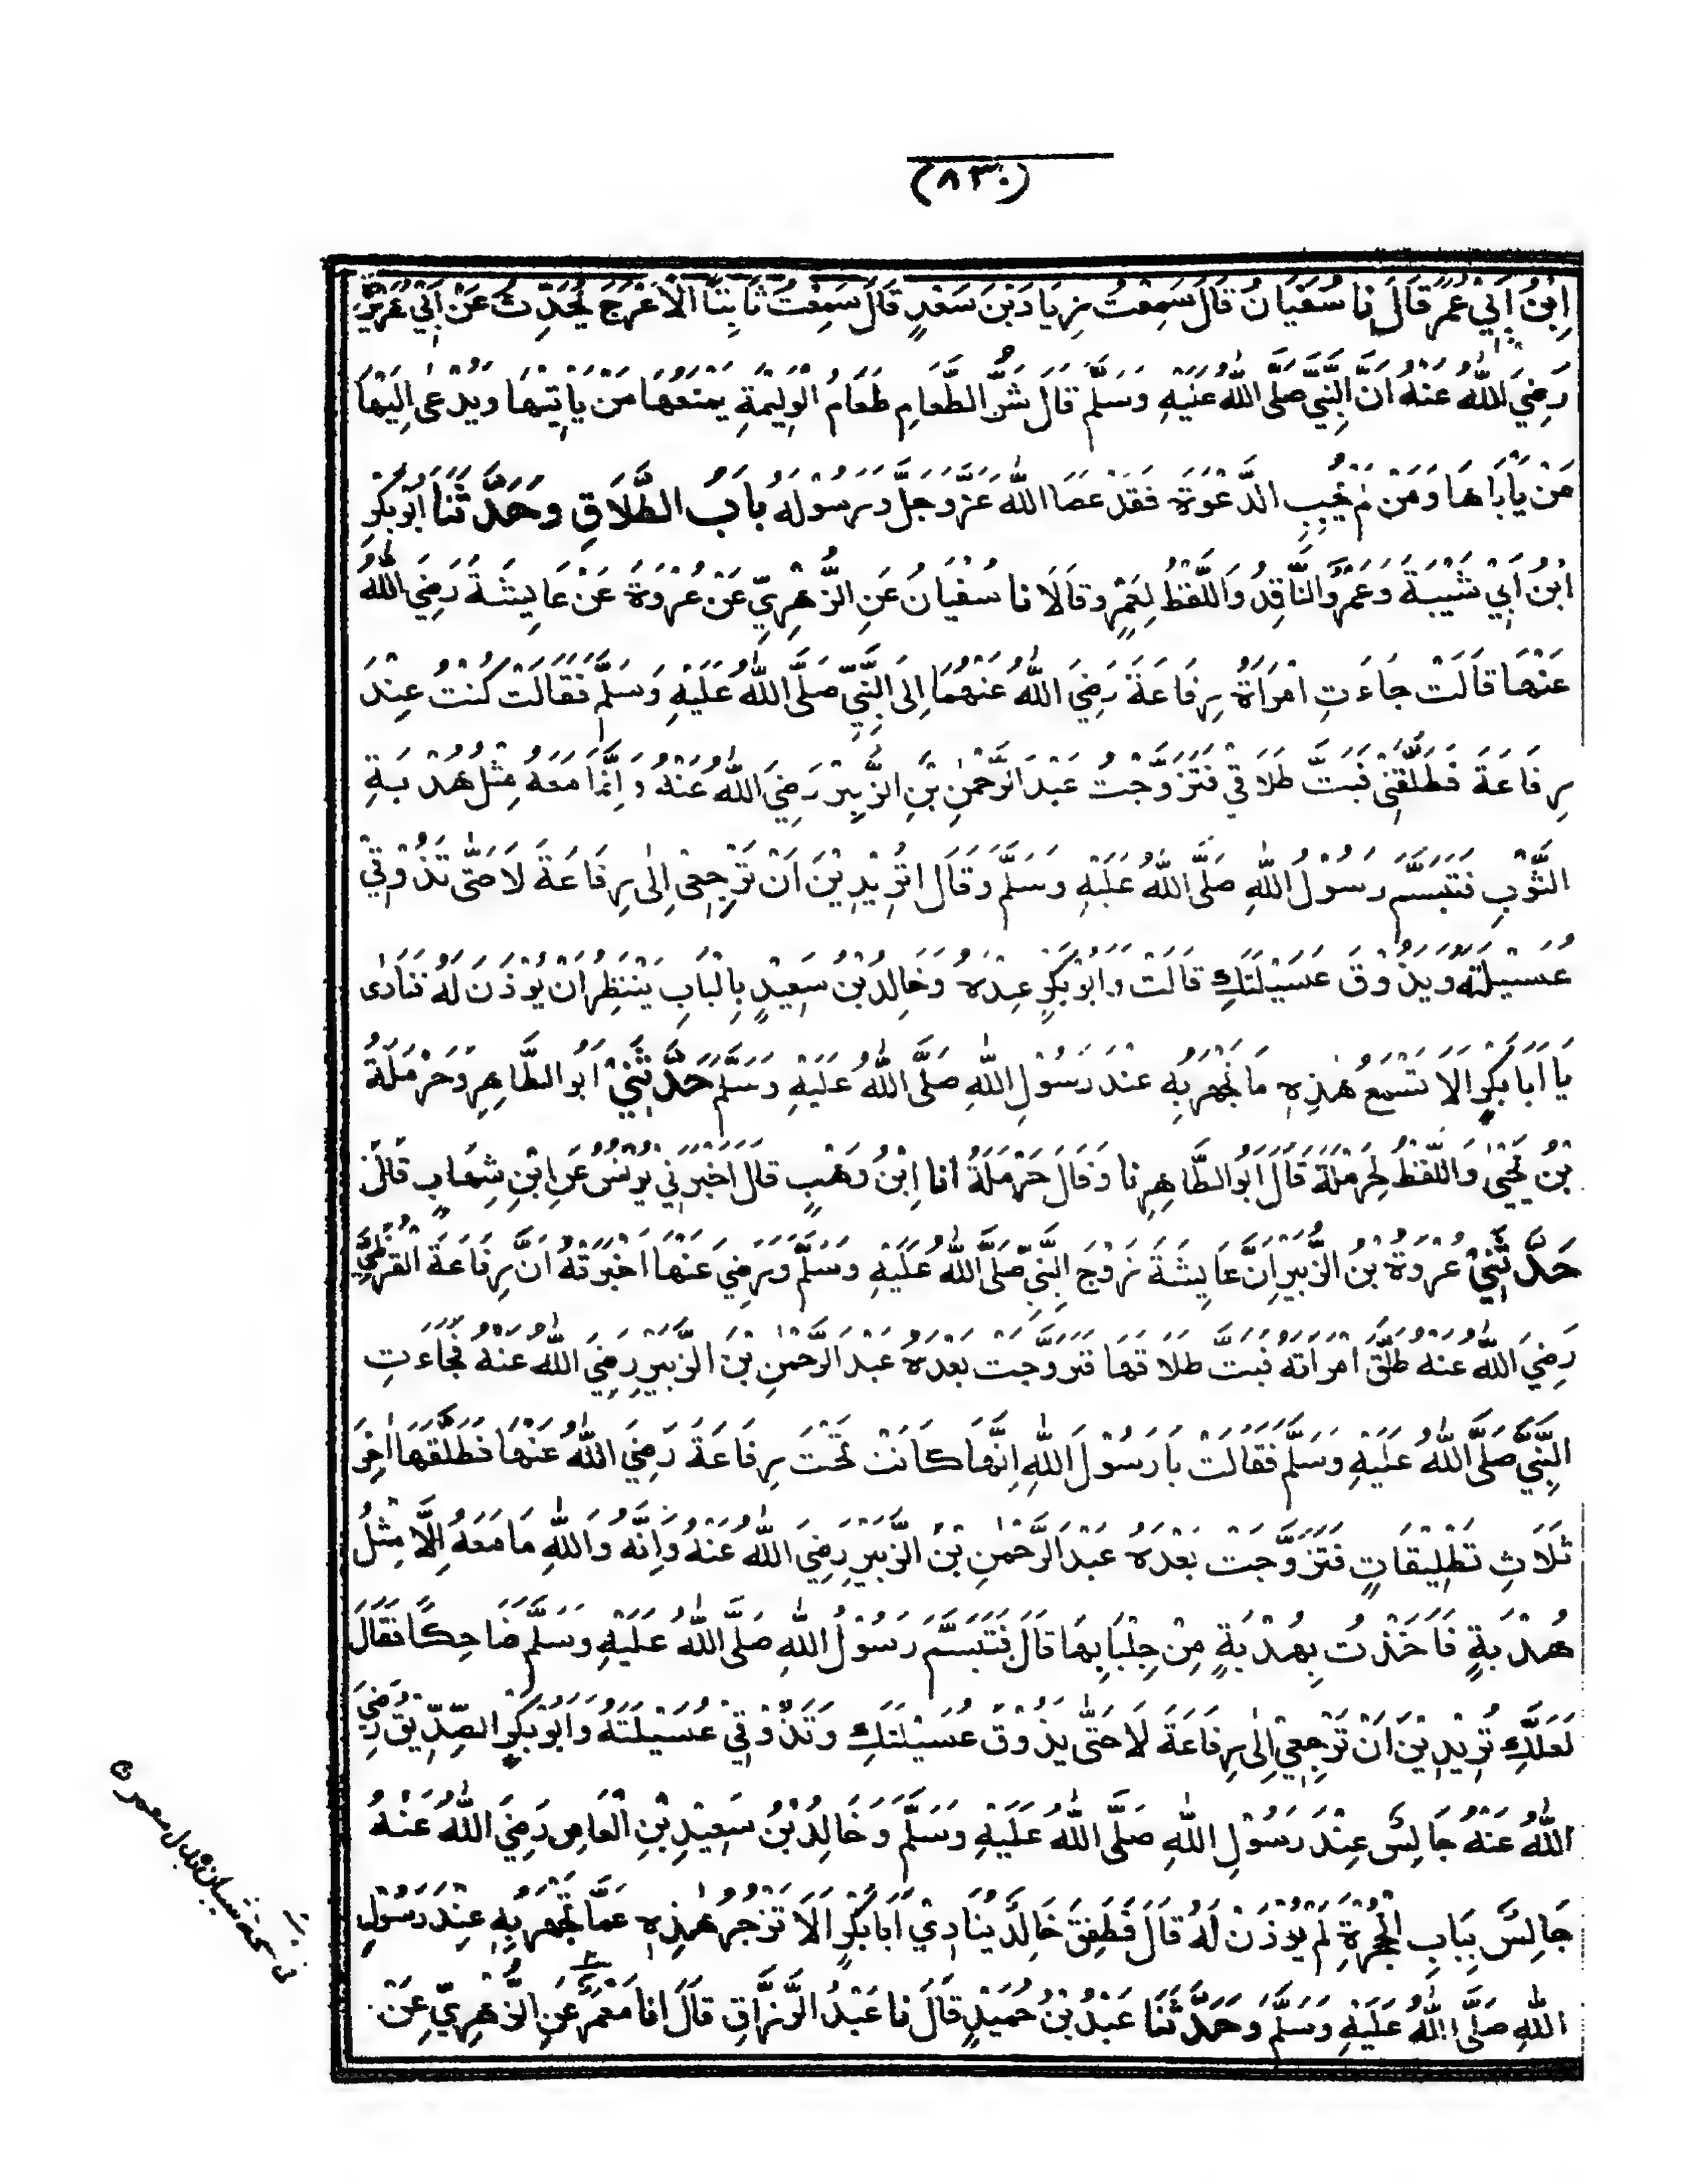 (٨٣٠)
ابْنُ اَبِيْ عُمَرَ قَالَ نا سُفْيَانُ قَالَ سَمِعْتُ زِيَادَ بْنَ سَعْدٍ قَالَ سَمِعْتُ ثَابِتًا الْاَعْرَجَ يُحَدِّثُ عَنْ اَبِيْ هُرَيْرَةَ
رَضِيَ اللّٰهُ عَنْهُ اَنَّ النَّبِيَّ صَلَّى اللّٰهُ عَلَيْهِ وَسَلَّمَ قَالَ شَرُّ الطَّعَامِ طَعَامُ الْوَلِيْمَةِ يُمْنَعُهَا مَنْ يَاْتِيْهَا وَيُدْعٰى اِلَيْهَا
مَنْ يَاْبَاهَا وَمَنْ لَمْ يُجِبِ الدَّعْوَةَ فَقَدْ عَصَا اللّٰهَ عَزَّ وَجَلَّ وَرَسُوْلَهُ بَابُ الطَّلَاقِ وَحَدَّثَنَا اَبُوْ بَكْرِ
ابْنُ اَبِيْ شَيْبَةَ وَعَمْرٌو النَّاقِدُ وَاللَّفْظُ لِعَمْرٍو قَالَا نا سُفْيَانُ عَنِ الزُّهْرِيِّ عَنْ عُرْوَةَ عَنْ عَايِشَةَ رَضِيَ اللّٰهُ
عَنْهَا قَالَتْ جَاءَتِ امْرَاَةُ رِفَاعَةَ رَضِيَ اللّٰهُ عَنْهُمَا اِلَى النَّبِيِّ صَلَّى اللّٰهُ عَلَيْهِ وَسَلَّمَ فَقَالَتْ كُنْتُ عِنْدَ
رِفَاعَةَ فَطَلَّقَنِيْ فَبَتَّ طَلَاقِيْ فَتَزَوَّجْتُ عَبْدَ الرَّحْمٰنِ بْنِ الزَّبِيْرِ رَضِيَ اللّٰهُ عَنْهُ وَاِنَّمَا مَعَهُ مِثْلُ هُدْبَةِ
الثَّوْبِ فَتَبَسَّمَ رَسُوْلُ اللّٰهِ صَلَّى اللّٰهُ عَلَيْهِ وَسَلَّمَ وَقَالَ اَتُرِيْدِيْنَ اَنْ تَرْجِعِيْ اِلٰى رِفَاعَةَ لَا حَتّٰى تَذُوْقِيْ
عُسَيْلَتَهُ وَيَذُوْقَ عُسَيْلَتَكِ قَالَتْ وَاَبُوْبَكْرٍ عِنْدَهُ وَخَالِدُ بْنُ سَعِيْدٍ بِالْبَابِ يَنْتَظِرُ اَنْ يُوْذَنَ لَهُ فَنَادٰى
يَا اَبَا بَكْرٍ اَلَا تَسْمَعُ هٰذِهِ مَا تَجْهَرُ بِهِ عِنْدَ رَسُوْلِ اللّٰهِ صَلَّى اللّٰهُ عَلَيْهِ وَسَلَّمَ حَدَّثَنِيْ اَبُو الطَّاهِرِ وَحَرْمَلَةُ
بْنُ يَحْيٰى وَاللَّفْظُ لِحَرْمَلَةَ قَالَ اَبُو الطَّاهِرِ نا وَقَالَ حَرْمَلَةُ انا ابْنُ وَهْبٍ قَالَ اَخْبَرَنِيْ يُوْنُسُ عَنِ ابْنِ شِهَابٍ قَالَ
حَدَّثَنِيْ عُرْوَةُ بْنُ الزُّبَيْرِ اَنَّ عَايِشَةَ زَوْجَ النَّبِيِّ صَلَّى اللّٰهُ عَلَيْهِ وَسَلَّمَ وَرَضِيَ عَنْهَا اَخْبَرَتْهُ اَنَّ رِفَاعَةَ الْقُرَظِيَّ
رَضِيَ اللّٰهُ عَنْهُ طَلَّقَ امْرَاَتَهُ فَبَتَّ طَلَاقَهَا فَتَزَوَّجَتْ بَعْدَهُ عَبْدَ الرَّحْمٰنِ بْنَ الزَّبِيْرِ رَضِيَ اللّٰهُ عَنْهُ فَجَاءَتِ
النَّبِيَّ صَلَّى اللّٰهُ عَلَيْهِ وَسَلَّمَ فَقَالَتْ يَا رَسُوْلَ اللّٰهِ اِنَّهَا كَانَتْ تَحْتَ رِفَاعَةَ رَضِيَ اللّٰهُ عَنْهَا فَطَلَّقَهَا اٰخِرَ
ثَلَاثِ تَطْلِيْقَاتٍ فَتَزَوَّجَتْ بَعْدَهُ عَبْدَ الرَّحْمٰنِ بْنَ الزَّبِيْرِ رَضِيَ اللّٰهُ عَنْهُ وَاِنَّهُ وَاللّٰهِ مَا مَعَهُ اِلَّا مِثْلُ
هُدْبَةٍ فَاَخَذَتْ بِهُدْبَةٍ مِنْ جِلْبَابِهَا قَالَ فَتَبَسَّمَ رَسُوْلُ اللّٰهِ صَلَّى اللّٰهُ عَلَيْهِ وَسَلَّمَ ضَاحِكًا فَقَالَ
لَعَلَّكِ تُرِيْدِيْنَ اَنْ تَرْجِعِيْ اِلٰى رِفَاعَةَ لَا حَتّٰى يَذُوْقَ عُسَيْلَتَكِ وَتَذُوْقِيْ عُسَيْلَتَهُ وَاَبُوْبَكْرٍ الصِّدِّيْقُ رَضِيَ
اللّٰهُ عَنْهُ جَالِسٌ عِنْدَ رَسُوْلِ اللّٰهِ صَلَّى اللّٰهُ عَلَيْهِ وَسَلَّمَ وَخَالِدُ بْنُ سَعِيْدِ بْنِ الْعَاصِ رَضِيَ اللّٰهُ عَنْهُ
جَالِسٌ بِبَابِ الْحُجْرَةِ لَمْ يُوْذَنْ لَهُ قَالَ فَطَفِقَ خَالِدٌ يُنَادِيْ اَبَا بَكْرٍ اَلَا تَزْجُرُ هٰذِهِ عَمَّا تَجْهَرُ بِهِ عِنْدَ رَسُوْلِ
اللّٰهِ صَلَّى اللّٰهُ عَلَيْهِ وَسَلَّمَ وَحَدَّثَنَا عَبْدُ بْنُ حُمَيْدٍ قَالَ نا عَبْدُ الرَّزَّاقِ قَالَ انا مَعْمَرٌ عَنِ الزُّهْرِيِّ عَنْ
سفيان بدل معمر